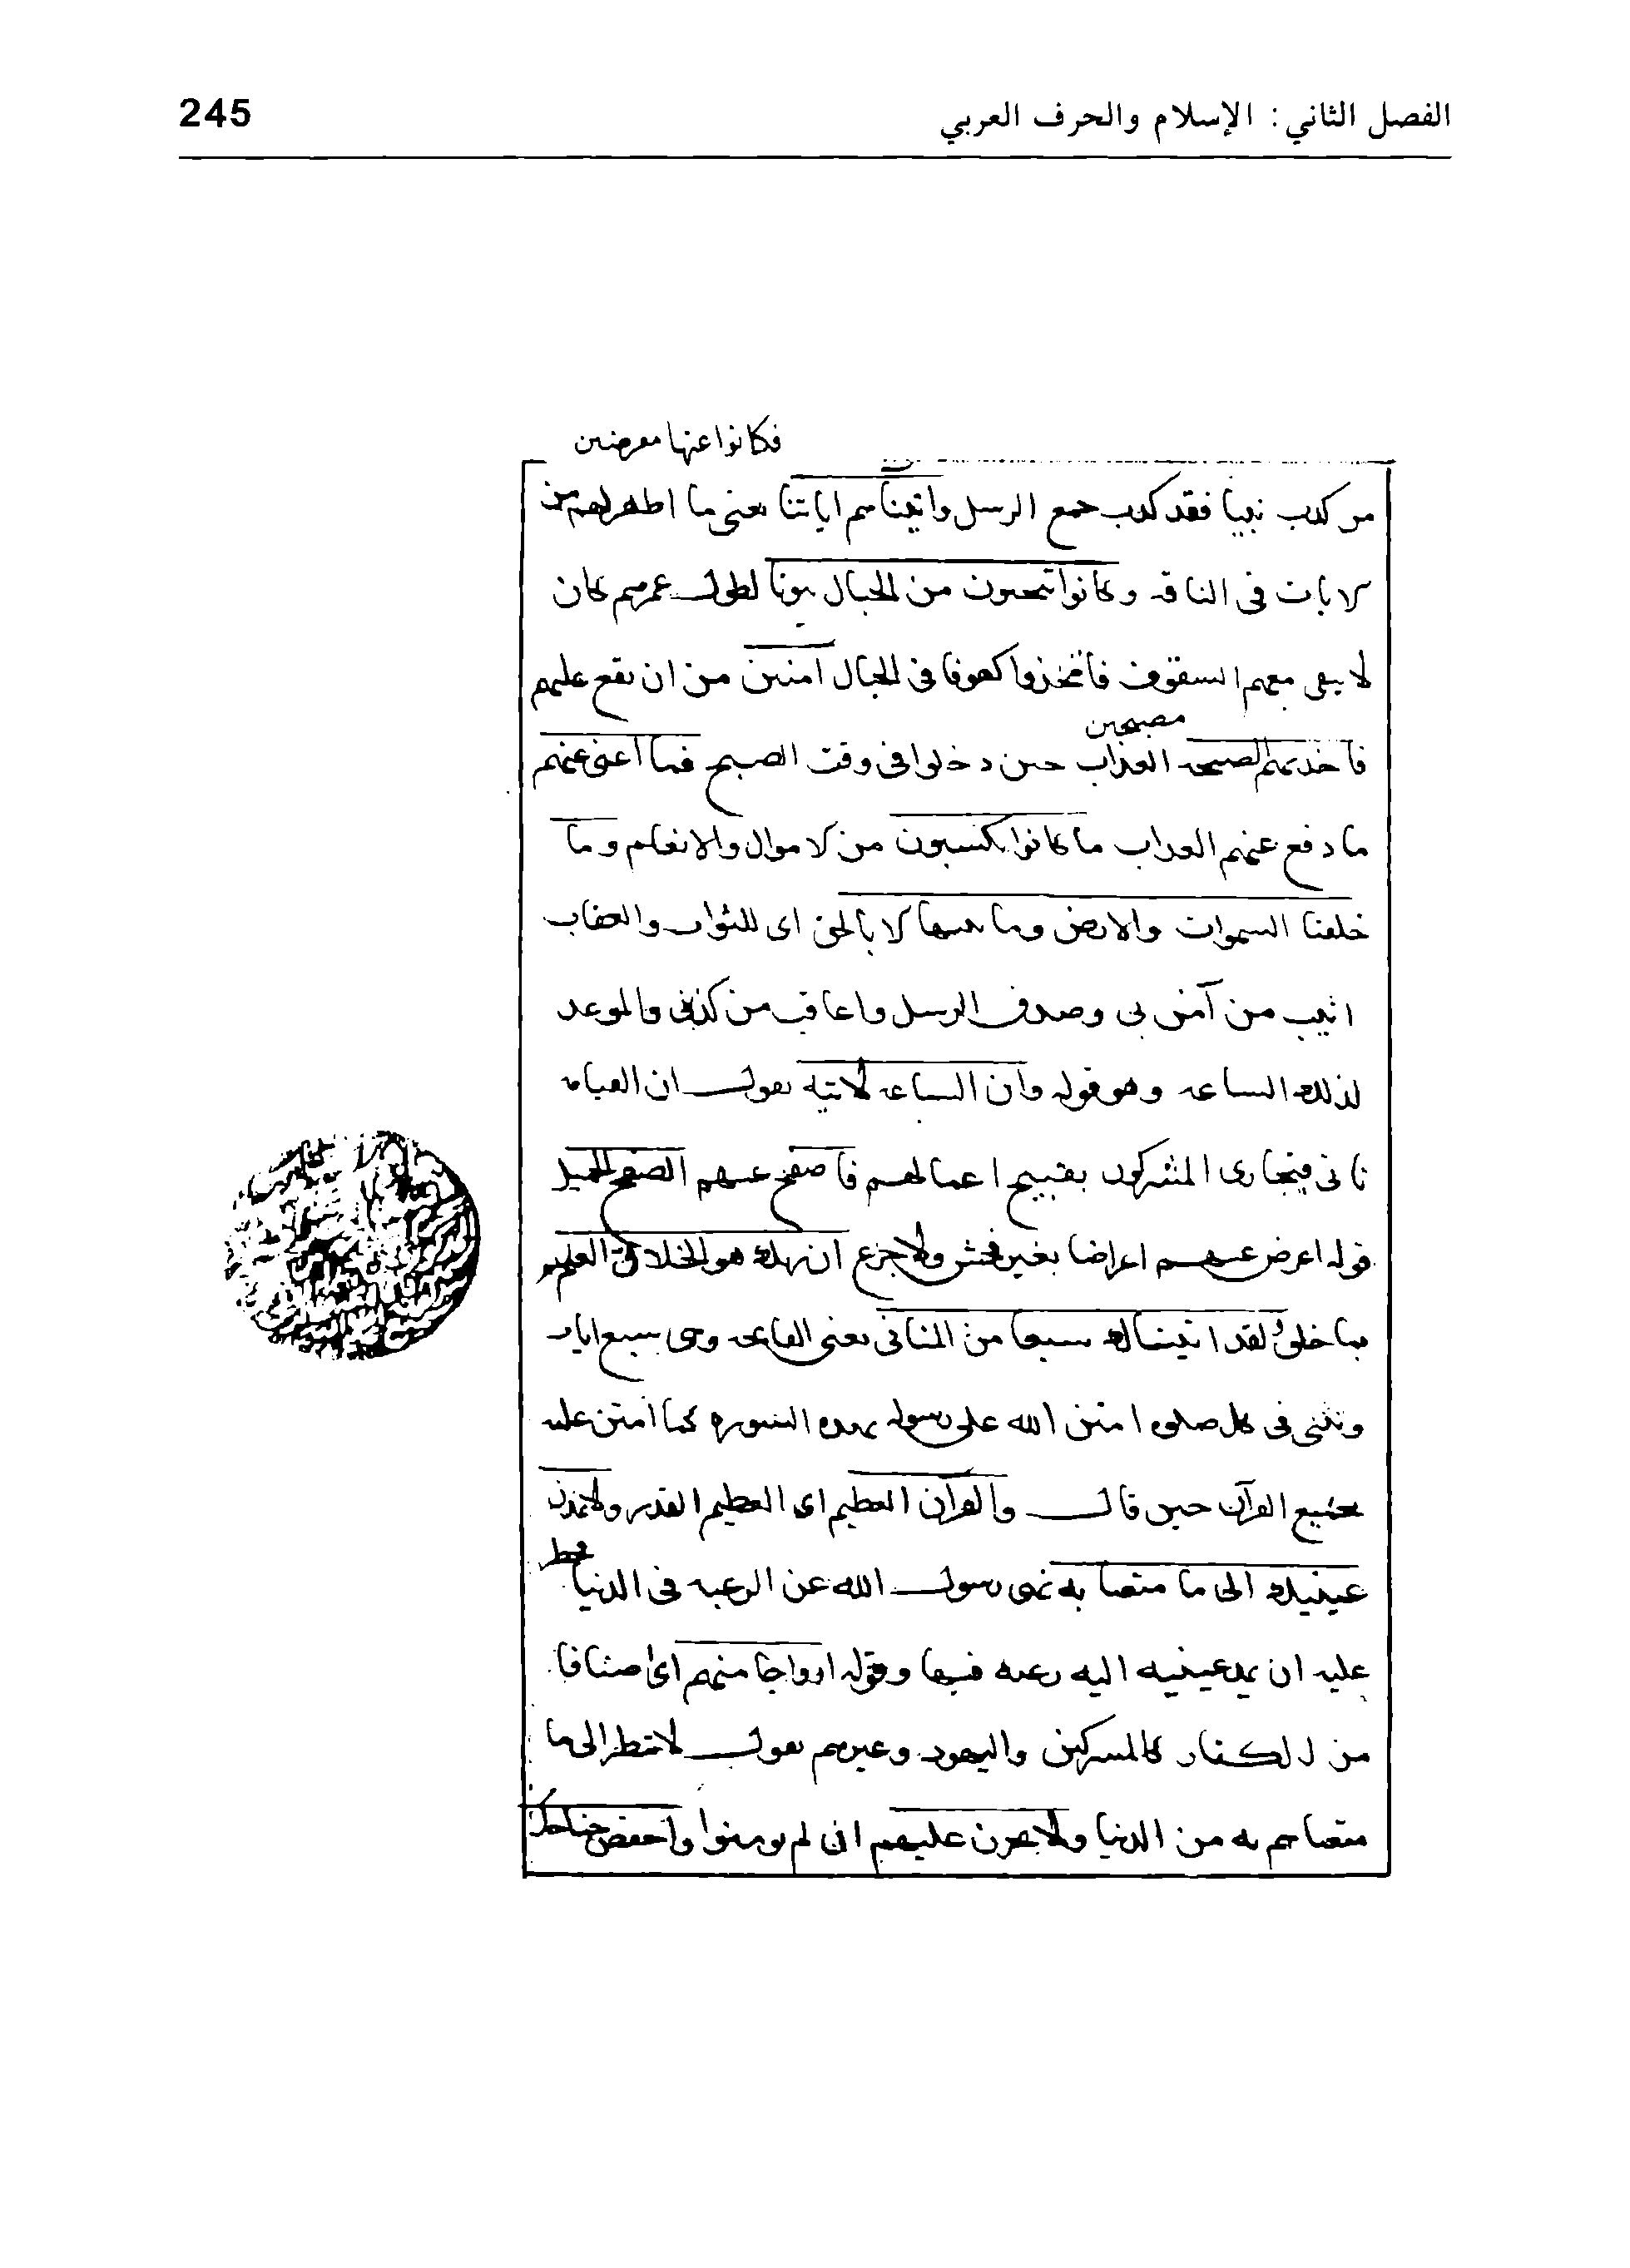 الفصل الثاني: الإسلام والحرف العربي 245
فكانوا عنها معرضين
من كذب نبيا فقد كذب جمع الرسل واتيناهم اياتنا يعنى ما اظهر لهم من
الايات فى الناقه وكانوا ينحتون من الجبال بيوتا لطول عمرهم كان
لا يبقى معهم السقوف فاتخذوا كهوفا فى الجبال امنين من ان يقع عليهم
مصبحين
فاخذتهم الصيحه العذاب حين دخلوا فى وقت الصبح فما اغنى عنهم
ما دفع عنهم العذاب ما كانوا يكسبون من الاموال والانعام وما
خلقنا السموات والارض وما بينهما الا بالحق اى للثواب والعقاب
اثيب من آمن بى وصدق الرسل واعاقب من كذبنى والموعد
لذلك الساعه وهو قوله وان الساعه لاتيه يقول ان القيامه
تاتى فيتجازى المشركون بقبيح اعمالهم فاصفح عنهم الصفح الجميل
قوله اعرض عنهم اعراضا بغير فحش ولا جزع ان ربك هو الخلاق العليم
بما خلق ولقد اتيناك سبعا من المثانى يعنى الفاتحه وهى سبع ايات
وتثنى فى كل صلوه امتن الله على رسوله بهذه السوره كما امتن عليه
بجميع القرآن حين قال والقران العظيم اى العظيم القدر ولا تمدن
عينيك الى ما متعنا به نهى رسول الله عن الرغبه فى الدنيا فحظر
عليه ان يمد عينيه اليه رغبه فيها وقوله ازواجا منهم اى اصنافا
من الكفار كالمشركين واليهود وغيرهم يقول لا تنظر الى ما
متعناهم به من الدنيا ولا تحزن عليهم ان لم يومنوا واخفض جناحك